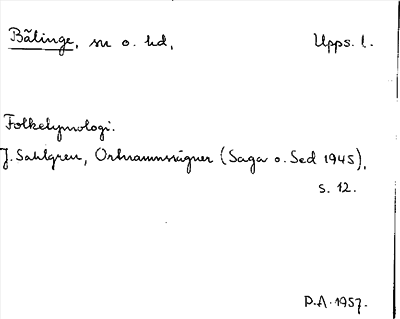 Bälinge, sn o. hd, Upps. l.
Folketymologi.
J. Sahlgren, Ortnamnssägner (Saga o. Sed 1945),
s. 12.
P.A. 1957.